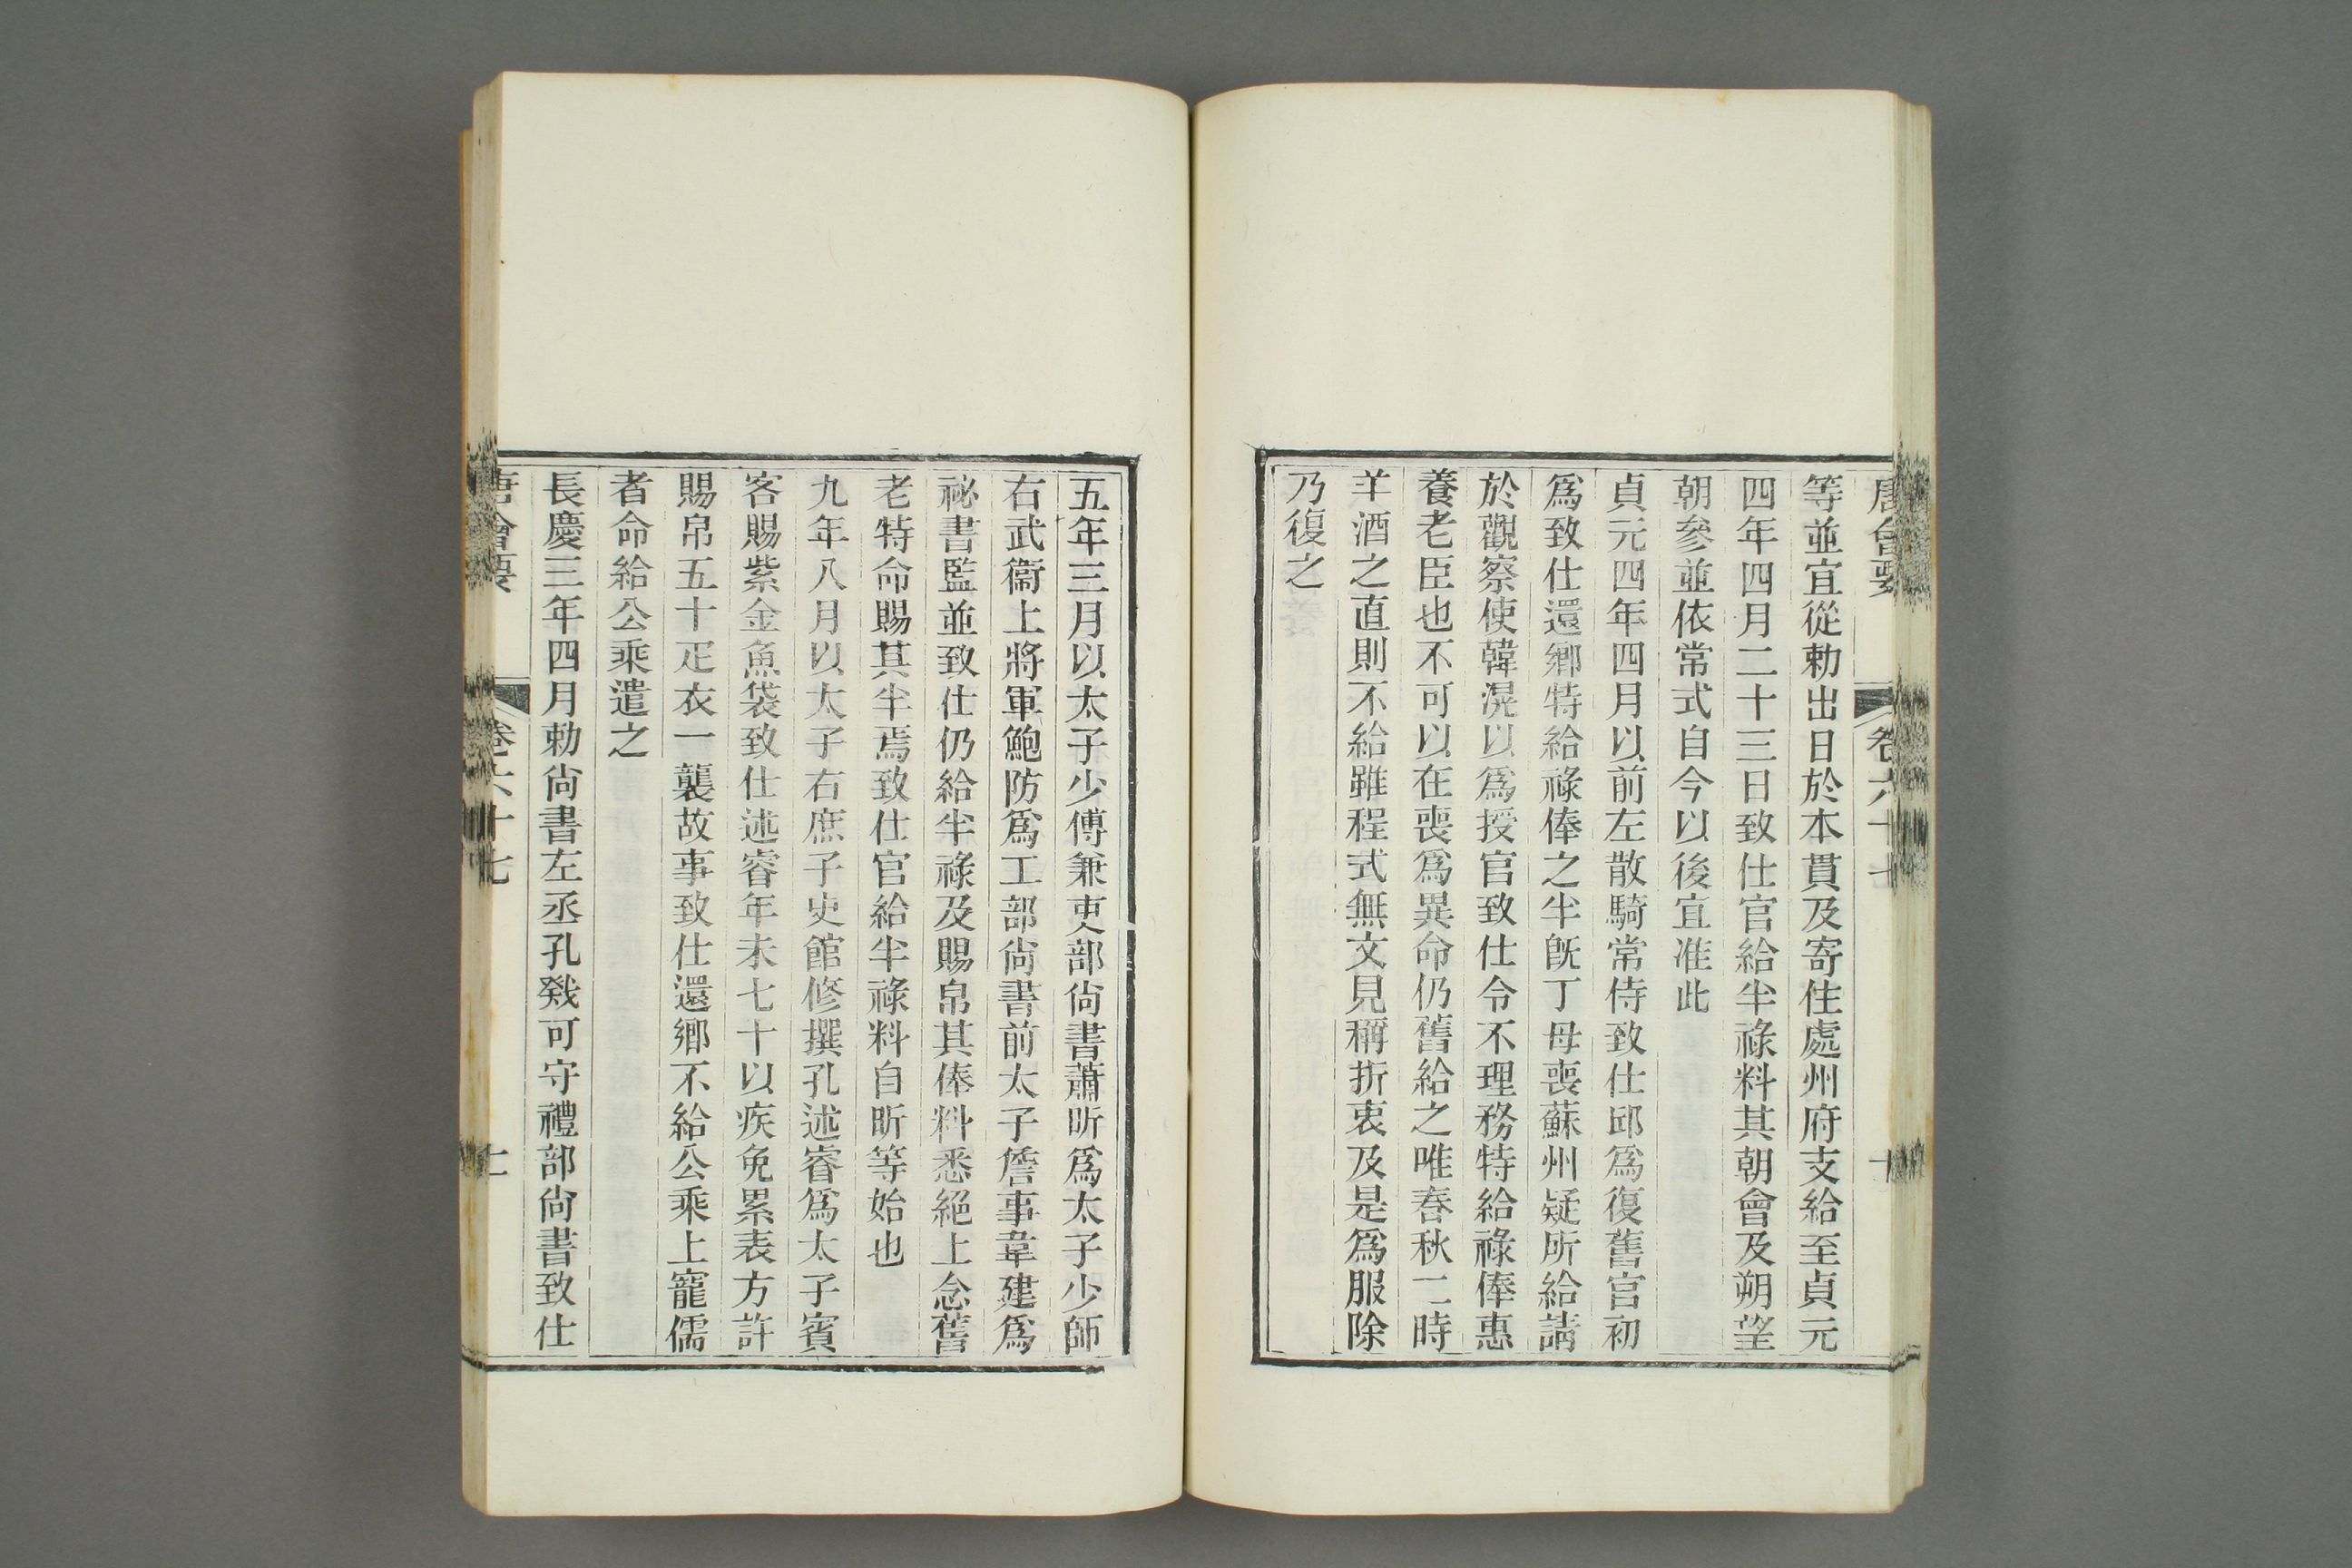 唐會要 卷六十七 十
等並宜從勅出日於本貫及寄住處州府支給至貞元
四年四月二十三日致仕官給半祿料其朝會及朔望
朝參並依常式自今以後宜准此
貞元四年四月以前左散騎常侍致仕邱爲復舊官初
爲致仕還鄉特給祿俸之半旣丁母喪蘇州疑所給請
於觀察使韓滉以爲授官致仕令不理務特給祿俸惠
養老臣也不可以在喪爲異命仍舊給之唯春秋二時
羊酒之直則不給雖程式無文見稱折衷及是爲服除
乃復之
五年三月以太子少傅兼吏部尙書蕭昕爲太子少師
右武衞上將軍鮑防爲工部尙書前太子詹事韋建爲
祕書監並致仕仍給半祿及賜帛其俸料悉絕上念舊
老特命賜其半焉致仕官給半祿料自昕等始也
九年八月以太子右庶子史館修撰孔述睿爲太子賓
客賜紫金魚袋致仕述睿年未七十以疾免累表方許
賜帛五十疋衣一襲故事致仕還鄉不給公乘上寵儒
者命給公乘遣之
長慶三年四月勅尙書左丞孔戣可守禮部尙書致仕
唐會要 卷六十七